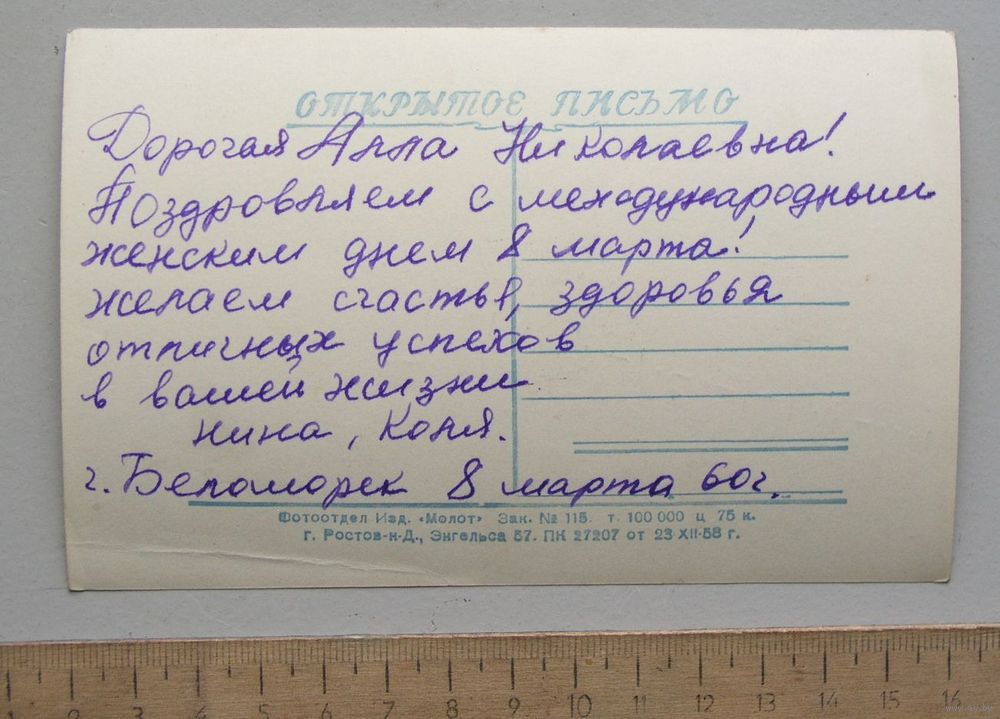 ОТКРЫТОЕ ПИСЬМО
Дорогая Алла Николаевна!
Поздровляем с международным
женским днем 8 марта!
желаем счастья, здоровья
отличных успехов
в вашей жизни
нина, Коля.
г. Беломорск 8 марта 60г.
Фотоотдел Изд. «Молот» Зак. № 115. т. 100 000 ц 75 к.
г. Ростов-н-Д., Энгельса 57. ПК 27207 от 23-XII-58 г.
1 2 3 4 5 6 7 8 9 10 11 12 13 14 15 16